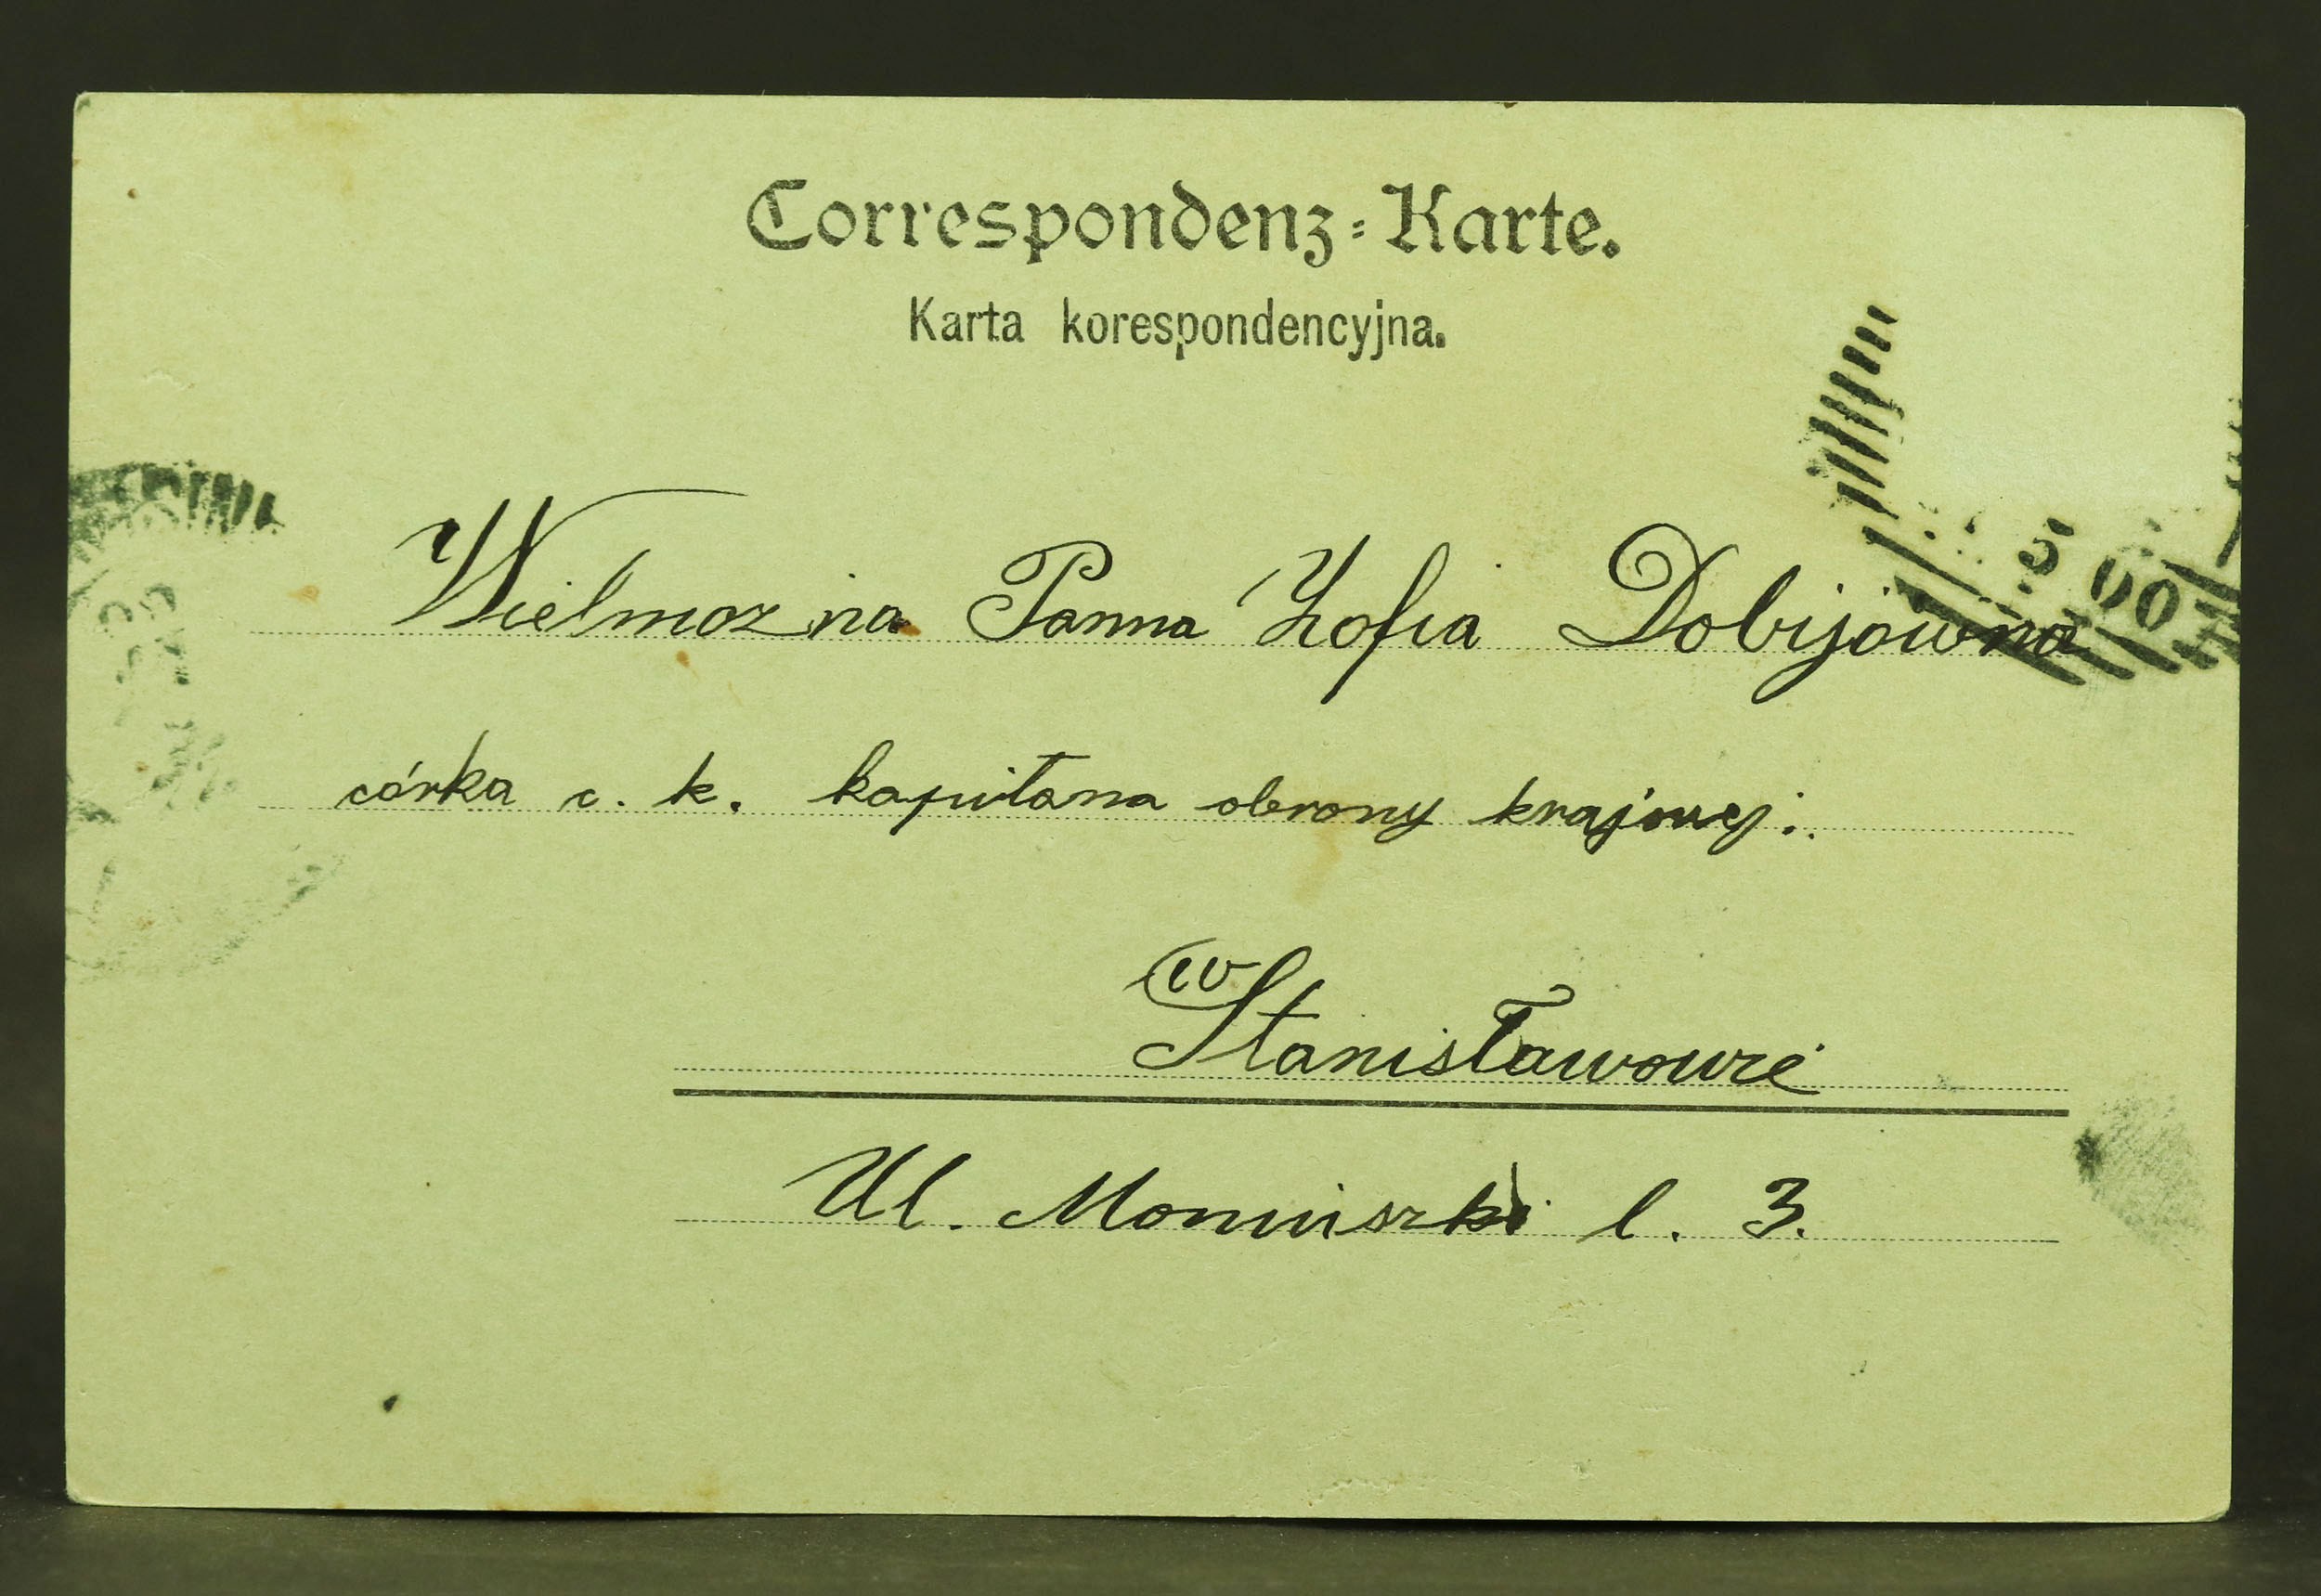 Correspondenz-Karte.
Karta korespondencyjna.
5 00
Wielmozna Panna Zofia Dobijówna
córka c. k. kapitana obrony krajowej.
w
Stanisławowie
Ul. Moniuszki l. 3.